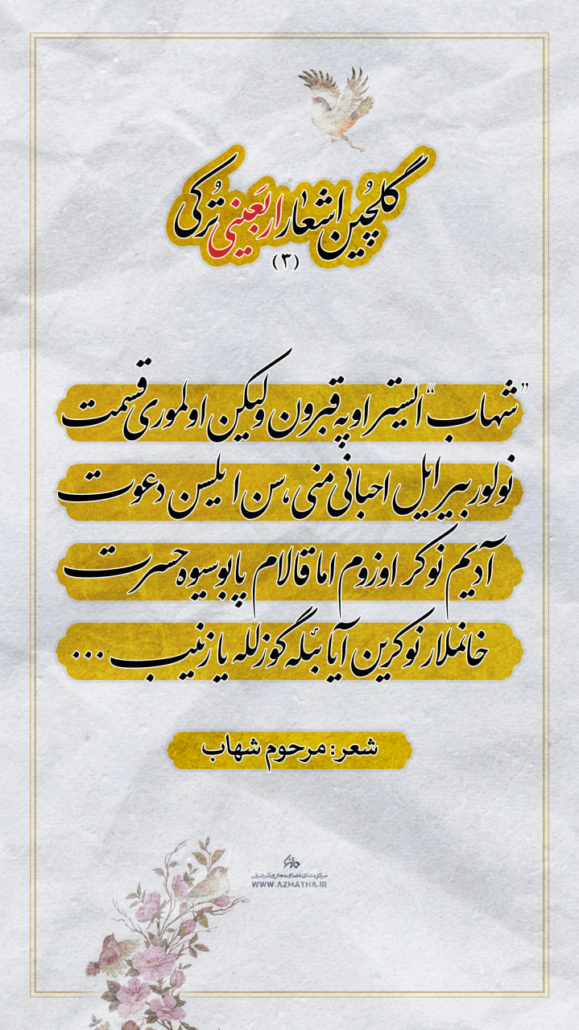 گلچین اشعار اربعینی تُرکی
(۳)
”شهاب“ ایستر اوپه قبرون ولیکن اولموری قسمت
نولور بیر ایل احبانی منی، سن ایلسن دعوت
آدیم نوکر اوزوم اما قالام پابوسیوه حسرت
خانملار نوکرین آیا بئله گوزلله یا زینب ...
شعر: مرحوم شهاب
WWW.AZMATHA.IR